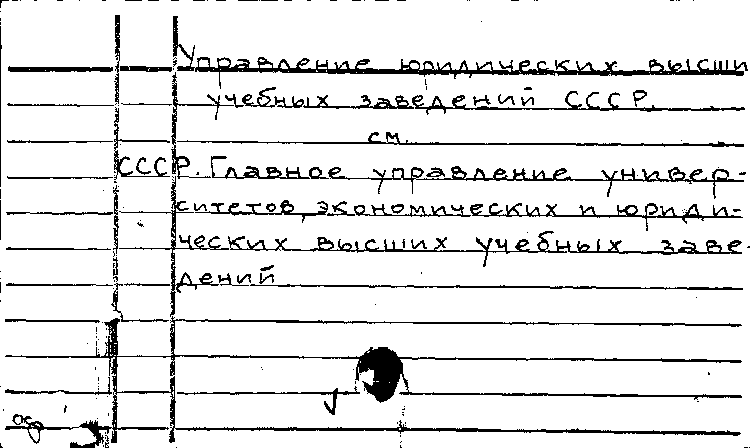 Управление юридических высши
учебных заведений СССР.
см.
СССР. Главное управление универ-
ситетов, экономических и юриди-
ческих высших учебных заве-
дений